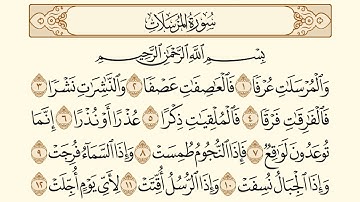 سُورَةُ المُرۡسَلَات
بِسۡمِ ٱللَّهِ ٱلرَّحۡمَٰنِ ٱلرَّحِيمِ
وَٱلۡمُرۡسَلَٰتِ عُرۡفٗا ١ فَٱلۡعَٰصِفَٰتِ عَصۡفٗا ٢ وَٱلنَّٰشِرَٰتِ نَشۡرٗا ٣
فَٱلۡفَٰرِقَٰتِ فَرۡقٗا ٤ فَٱلۡمُلۡقِيَٰتِ ذِكۡرًا ٥ عُذۡرًا أَوۡ نُذۡرًا ٦ إِنَّمَا
تُوعَدُونَ لَوَٰقِعٞ ٧ فَإِذَا ٱلنُّجُومُ طُمِسَتۡ ٨ وَإِذَا ٱلسَّمَآءُ فُرِجَتۡ ٩
وَإِذَا ٱلۡجِبَالُ نُسِفَتۡ ١٠ وَإِذَا ٱلرُّسُلُ أُقِّتَتۡ ١١ لِأَيِّ يَوۡمٍ أُجِّلَتۡ ١٢